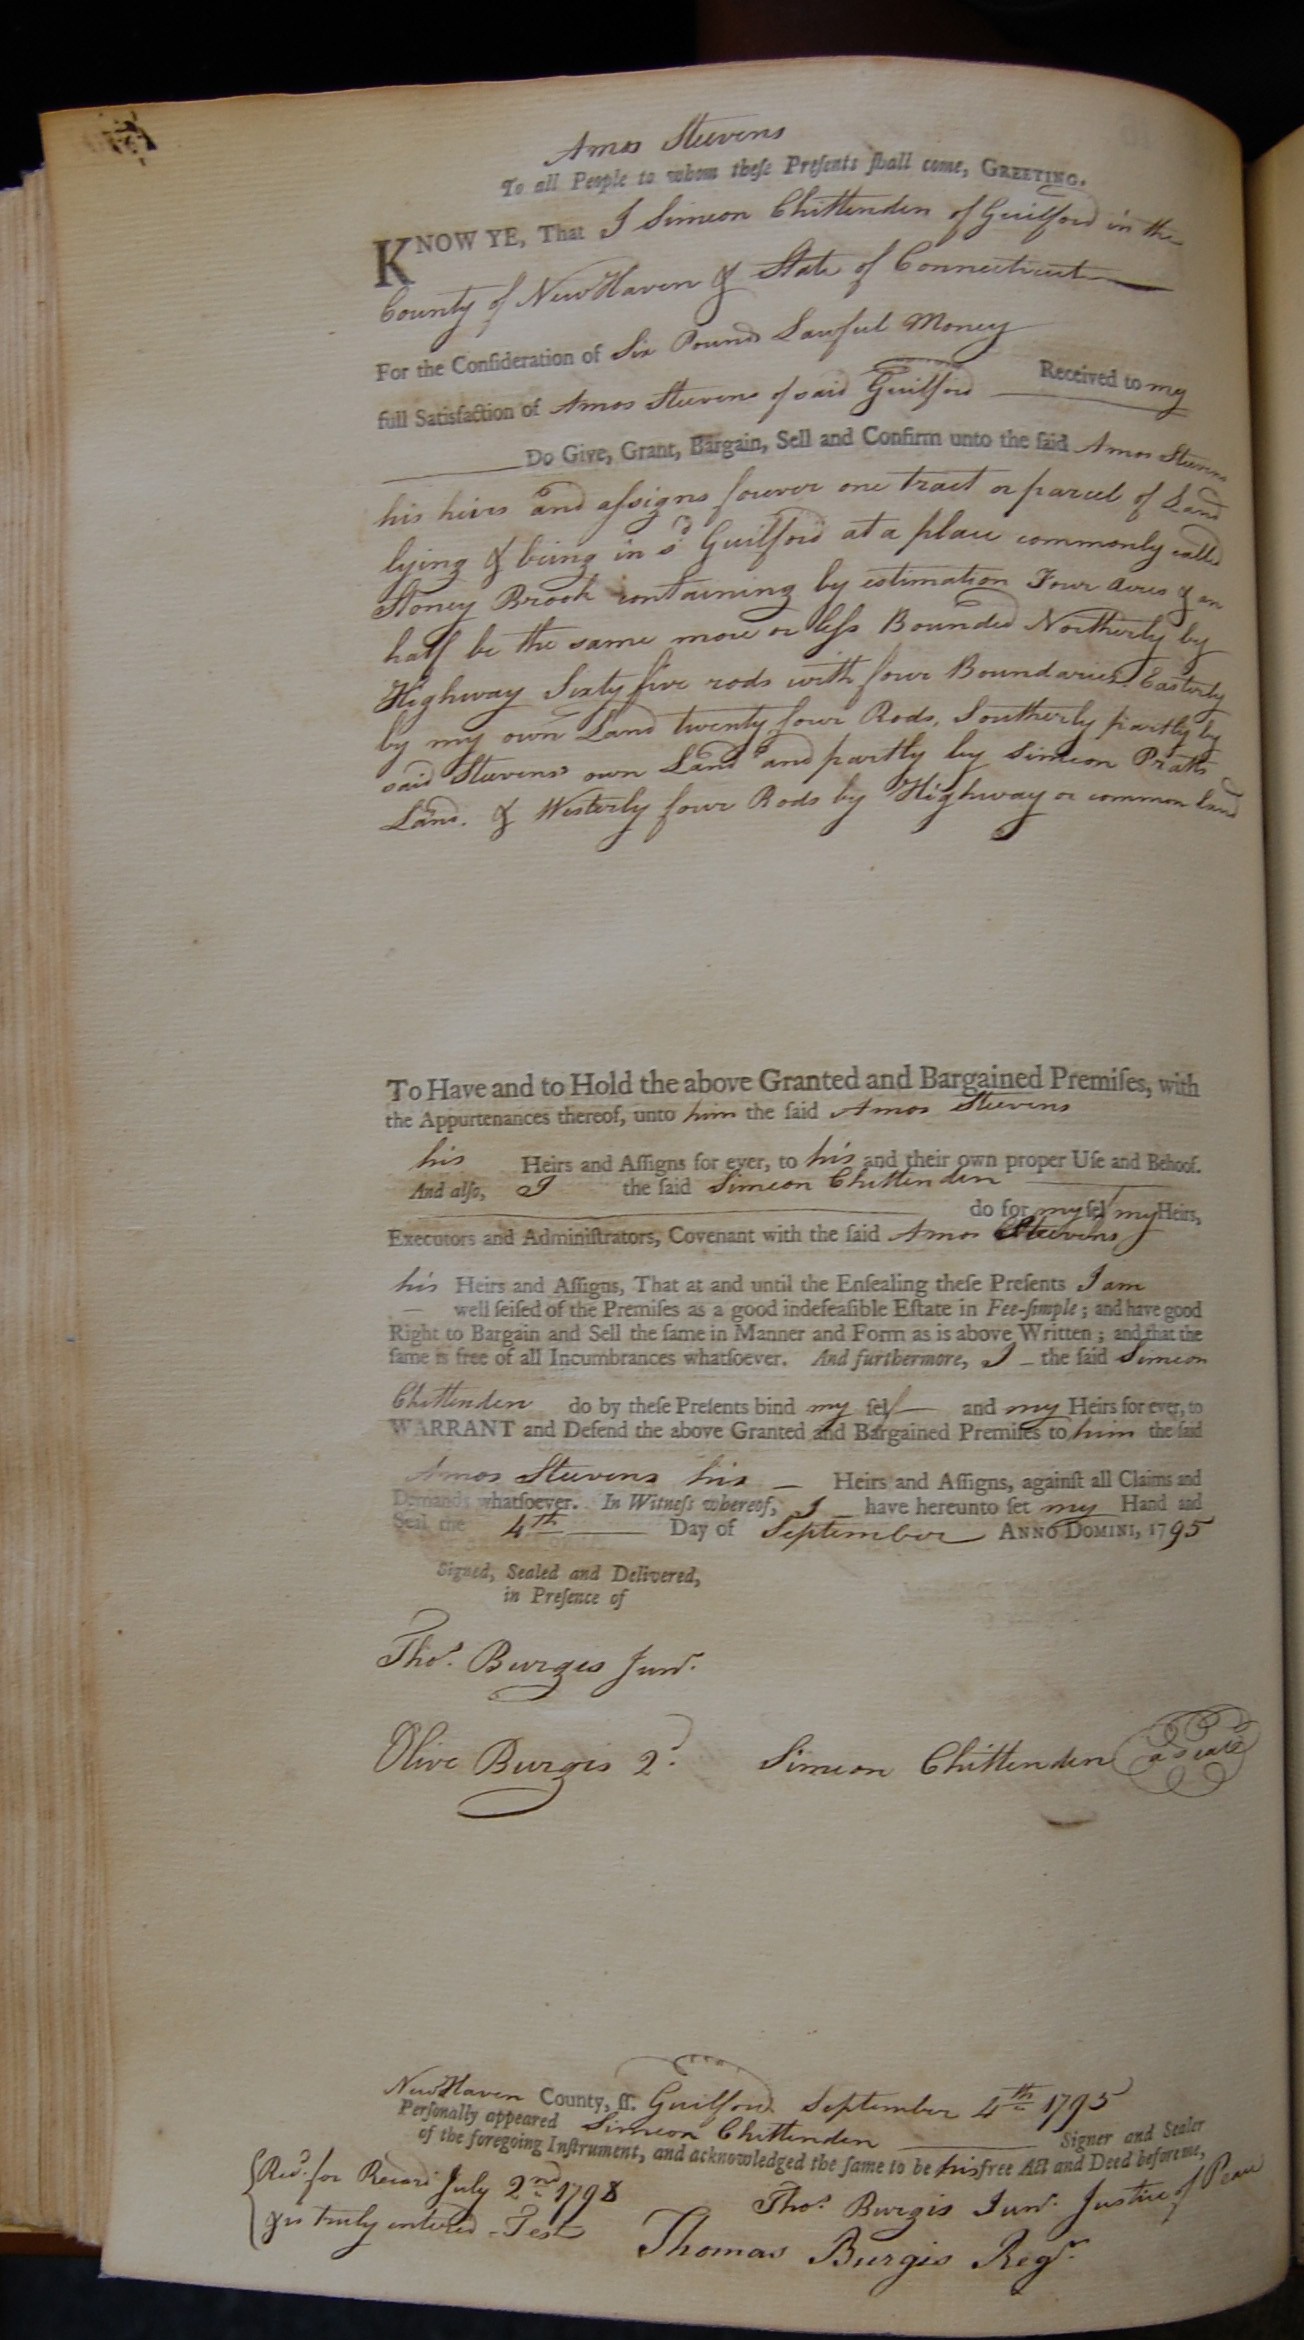 Amos Steevens
To all People to whom theſe Preſents ſhall come, GREETING.
KNOW YE, That I Simeon Chittenden of Guilford in the
County of New Haven & State of Connecticut
For the Conſideration of Six Pounds Lawful Money
Received to my
full Satisfaction of Amos Steevens of said Guilford
Do Give, Grant, Bargain, Sell and Confirm unto the ſaid Amos Steevens
his heirs and aſsigns forever one tract or parcel of Land
lying & being in sd Guilford at a place commonly called
Stoney Brook containing by estimation Four acres & an
half be the same more or leſs Bounded Northerly by
Highway Sixty five rods with four Boundaries. Easterly
by my own Land twenty four Rods, Southerly partly by
said Steevens's own Land and partly by Simeon Pratts
Land. & Westerly four Rods by Highway or common land
To Have and to Hold the above Granted and Bargained Premiſes, with
the Appurtenances thereof, unto him the ſaid Amos Steevens
his Heirs and Aſſigns for ever, to his and their own proper Uſe and Behoof.
And alſo, I the ſaid Simeon Chittenden
do for my ſelf my Heirs,
Executors and Adminiſtrators, Covenant with the ſaid Amos Steevens
his Heirs and Aſſigns, That at and until the Enſealing theſe Preſents I am
well ſeiſed of the Premiſes as a good indefeaſible Eſtate in Fee-ſimple; and have good
Right to Bargain and Sell the ſame in Manner and Form as is above Written; and that the
ſame is free of all Incumbrances whatſoever. And furthermore, I the ſaid Simeon
Chittenden do by theſe Preſents bind my ſelf and my Heirs for ever, to
WARRANT and Defend the above Granted and Bargained Premiſes to him the ſaid
Amos Steevens his Heirs and Aſſigns, againſt all Claims and
Demands whatſoever. In Witneſs whereof, I have hereunto ſet my Hand and
Seal the 4th Day of September ANNO DOMINI, 1795
Signed, Sealed and Delivered,
in Preſence of
Thos. Burges Junr.
Olive Burgis 2d. Simeon Chittenden a seal
New Haven County, ſſ. Guilford September 4th 1795
Perſonally appeared Simeon Chittenden Signer and Sealer
of the foregoing Inſtrument, and acknowledged the ſame to be his free Act and Deed before me,
Thos. Burgis Junr. Justice of Peace
Recd. for Record July 2nd 1798
& is truly entered - Test
Thomas Burgis Regr.